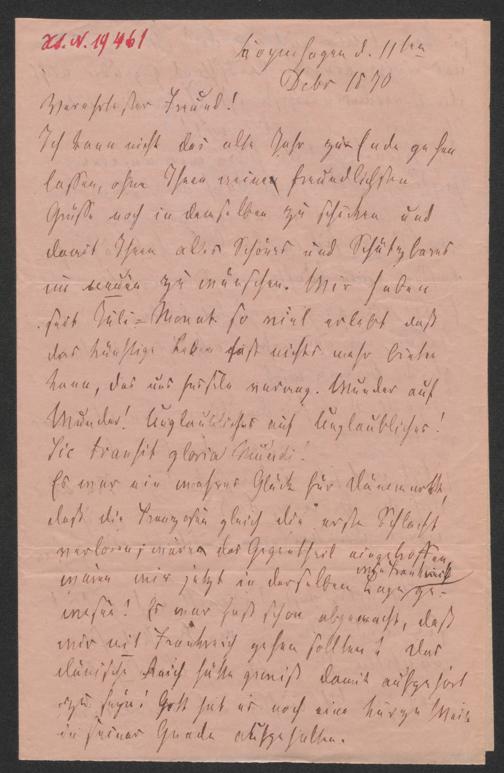 Hs. N. 19461
Kopenhagen d. 11ten
Debr 1870
Verehrtester Freund!
Ich kann nicht das alte Jahr zu Ende gehen
lassen, ohne Ihnen meine freundlichsten
Grüße noch in demselben zu schicken und
damit Ihnen alles Schönes und Schätzbares
im neuen zu wünschen. Wir haben
seit Juli-Monat so viel erlebt daß
das künftige Leben fast nichts mehr bieten
kann, das uns fesseln vermag. Wunder auf
Wunder! Unglaubliches auf Unglaubliches!
Sic transit gloria Mundi!
Es war ein wahres Glück für Dänemark,
daß die Franzosen gleich die erste Schlacht
verloren; wäre das Gegentheil eingetroffen
wären wir jetzt in derselben Lage ge-
wie Frankreich
wesen! Es war fast schon abgemacht, daß
wir mit Frankreich gehen sollten! Das
dänische Reich hätte gewiß damit aufgehört
zu seyn! Gott hat es noch eine kurze Weile
in seiner Gnade aufgehalten.